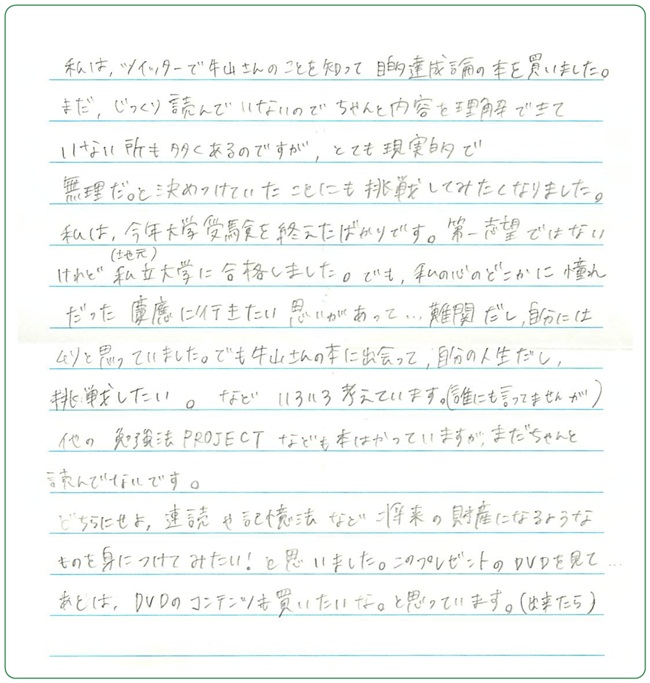 私は、ツイッターで牛山さんのことを知って目的達成論の本を買いました。
まだ、じっくり読んでいないのでちゃんと内容を理解できて
いない所も多くあるのですが、とても現実的で
無理だ。と決めつけていたことにも挑戦してみたくなりました。
私は、今年大学受験を終えたばかりです。第一志望ではない
(地元)
けれど私立大学に合格しました。でも、私の心のどこかに憧れ
だった慶應に行きたい思いがあって…難関だし、自分には
ムリと思っていました。でも牛山さんの本に出会って、自分の人生だし、
挑戦したい。などいろいろ考えています。(誰にも言ってませんが)
他の勉強法PROJECTなども本はかっていますが、まだちゃんと
読んでないです。
どちらにせよ、速読や記憶法など将来の財産になるような
ものを身につけてみたい!と思いました。このプレゼントのDVDを見て…
あとは、DVDのコンテンツも買いたいな。と思っています。(出来たら)